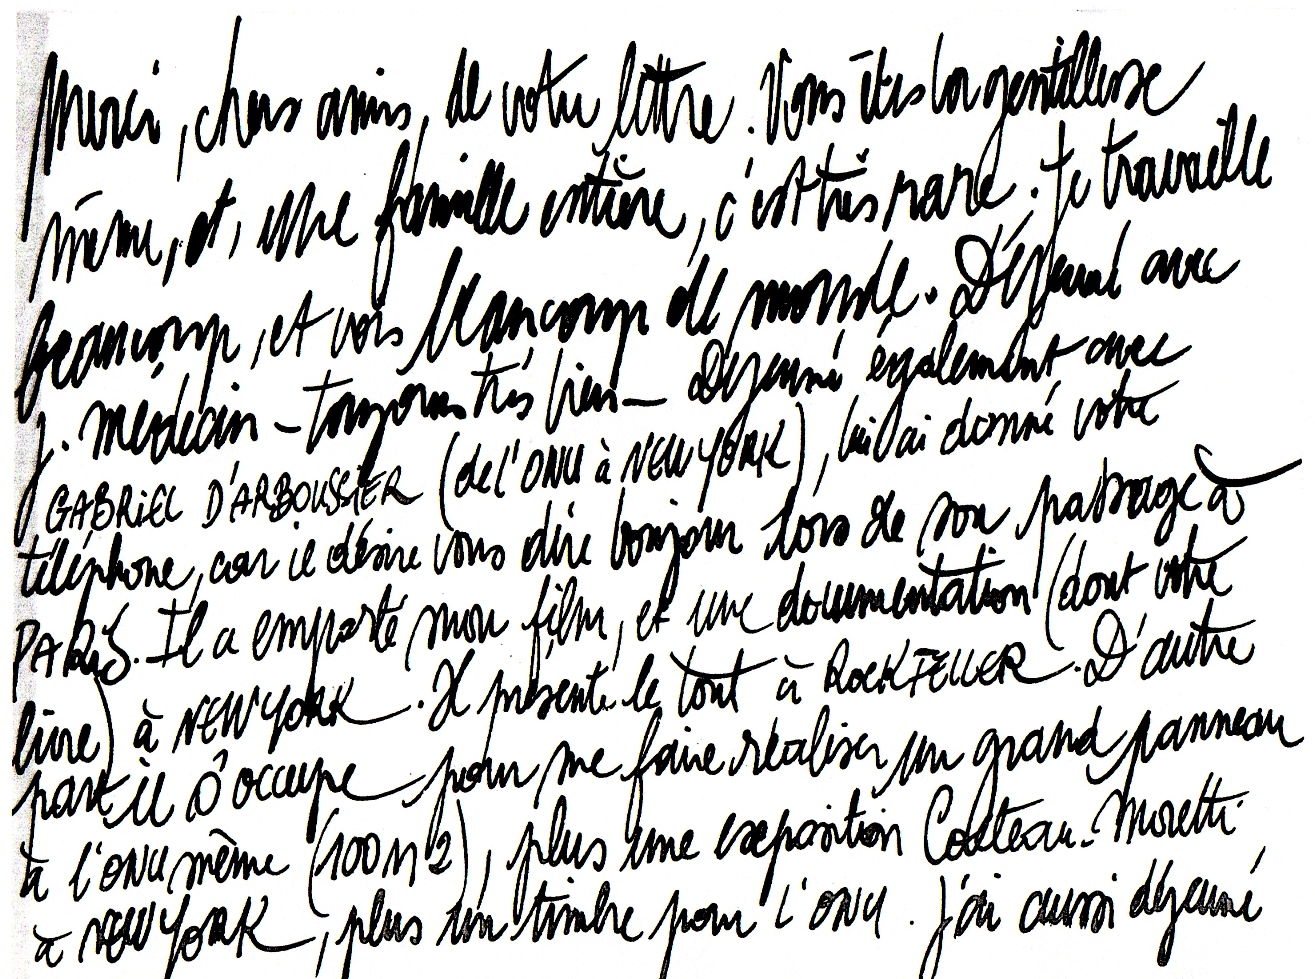 Merci, chers amis, de votre lettre. Vous êtes la gentillesse
même, et, une famille entière, c'est très rare. Je travaille
beaucoup, et vois beaucoup de monde. Déjeuné avec
J. Médecin - toujours très bien - Déjeuné également avec
GABRIEL D'ARBOUSSIER (de l'ONU à NEW YORK), lui ai donné votre
téléphone, car il désire vous dire bonjour lors de son passage à
PARIS. Il a emporté mon film, et une documentation (dont votre
livre) à NEW YORK. Il présente le tout à ROCKFELLER. D'autre
part il s'occupe pour me faire réaliser un grand panneau
à l'ONU même (100 M2), plus une exposition Cocteau-Moretti
à NEW YORK, plus un timbre pour l'ONU. J'ai aussi déjeuné